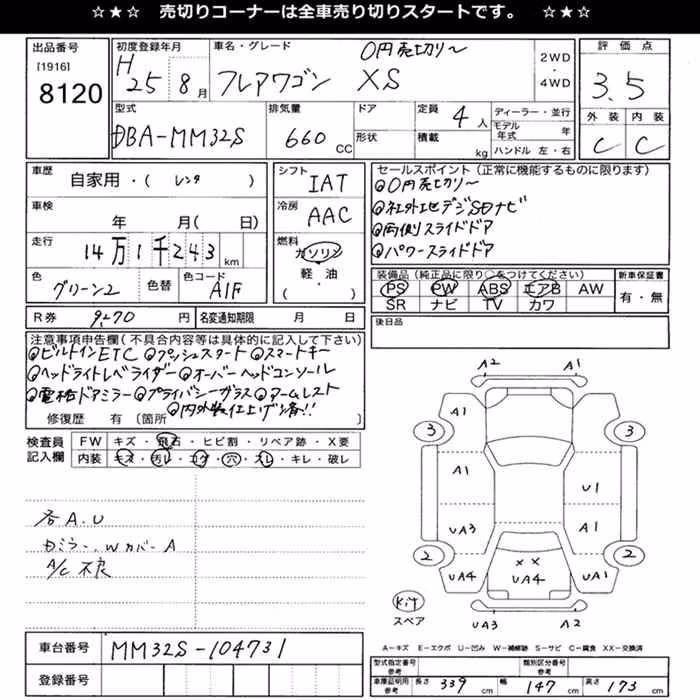 ☆★☆ 売切りコーナーは全車売り切りスタートです。 ☆★☆
出品番号
[1916]
8120
初度登録年月
H25 8月
車名・グレード
0円売切り〜
フレアワゴン XS
2WD
・
4WD
評価点
3.5
外装 内装
C C
型式
DBA-MM32S
排気量
660 CC
ドア
形状
定員 4 人
積載 kg
ディーラー・並行
モデル年式 年
ハンドル 左・右
車歴
自家用・( レンタ )
車検
年 月( 日)
走行
14万1千243km
色
グリーン2
色替
色コード
A1F
シフト
IAT
冷房
AAC
燃料
ガソリン
軽・油
セールスポイント(正常に機能するものに限ります)
◎0円売切り〜
◎社外地デジSDナビ
◎両側スライドドア
◎パワースライドドア
装備品(純正品に限り○をつけてください)
PS PW ABS エアB AW
SR ナビ TV カワ
新車保証書
有・無
R券 9,270 円
名変通知期限 月 日
後日品
注意事項申告欄(不具合内容等は具体的に記入して下さい)
◎ビルトインETC ◎プッシュスタート ◎スマートキー
◎ヘッドライトレベライザー ◎オーバーヘッドコンソール
◎電格ドアミラー ◎プライバシーガラス ◎アームレスト
◎内外装仕上げ済!!
修復歴 有 (箇所
検査員記入欄
FW キズ・飛石・ヒビ割・リペア跡・X要
内装 キズ・汚レ・コゲ・穴・スレ・キレ・破レ
各A.U
ミラー、Wカバー A
A/C不良
A2 A1
A1
3 3
A1 U1
UA3 A1
2 2
×× 
UA4 UA4 UA1
Kit
スペア
UA3 A2
A―キズ E―エクボ U―凹み W―補修跡 S―サビ C―腐食 XX―交換済
車台番号
MM32S-104731
登録番号
型式指定番号 参考
類別区分番号 参考
車庫証明用参考 長さ 339 cm 幅 147 cm 高さ 173 cm